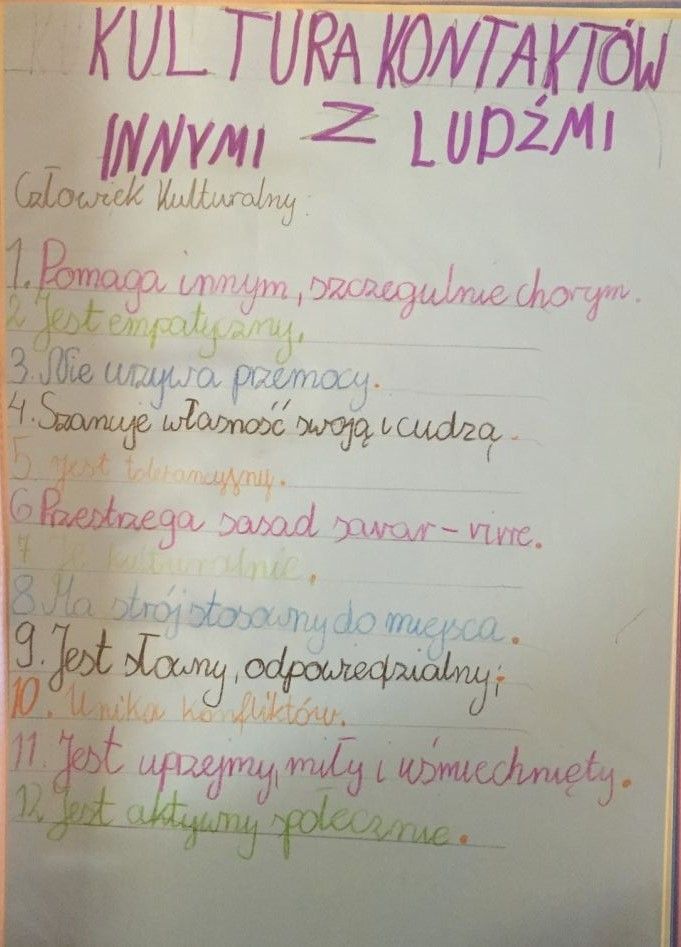 KULTURA KONTAKTÓW
INNYMI Z LUDŹMI
Człowiek Kulturalny:
1. Pomaga innym, szczegulnie chorym.
2 Jest empatyczny.
3. Nie urzywa przemocy.
4. Szanuje własność swoją i cudzą.
5 Jest tolerancyjny.
6 Przestrzega sasad savar-vivre.
7 Je kulturalnie.
8. Ma strój stosowny do miejsca.
9. Jest słowny, odpowiedzialny;
10. Unika konfliktów.
11. Jest uprzejmy, miły i uśmiechnięty.
12 Jest aktywny społecznie.